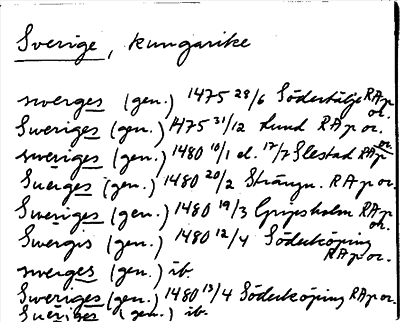 Sverige, kungarike
swerges (gen.) 1475 28/6 Södertälje RAp or.
Sweriges (gen.) 1475 31/12 Lund RAp or.
sweriges (gen.) 1480 10/1 el. 17/7 Slestad RAp or.
Suerges (gen.) 1480 20/2 Strängn. RAp or.
Sweriges (gen.) 1480 19/3 Gripsholm RAp or.
Swergis (gen.) 1480 12/4 Söderköping RAp or.
swerges (gen.) ib.
Sweriges (gen.) 1480 13/4 Söderköping RAp or.
Sueriges (gen.) ib.